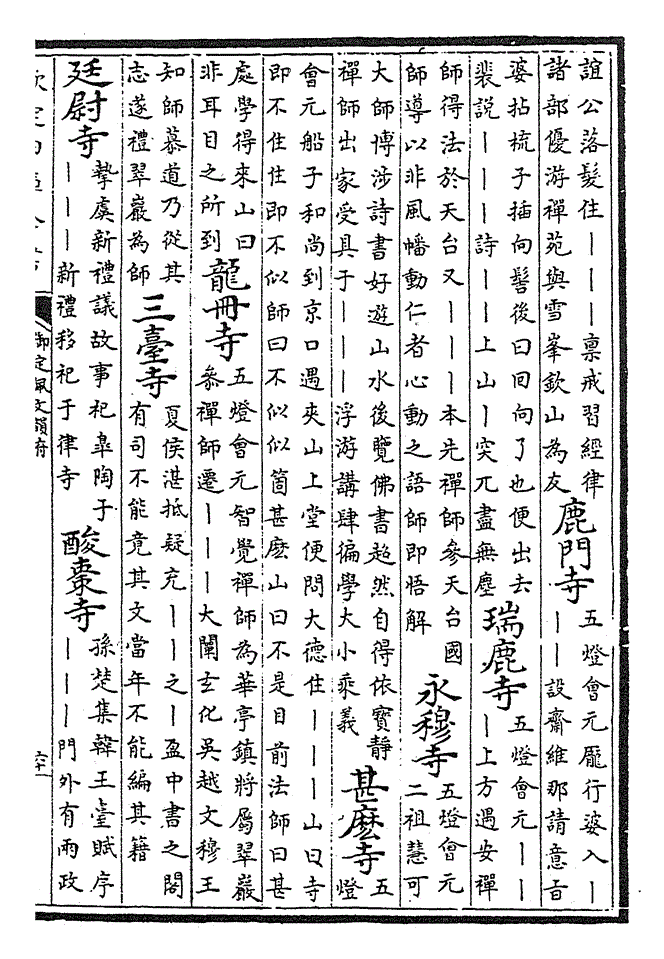 誼公落髮住｜｜｜稟戒習經律
諸部優游禪苑與雪峯欽山為友
鹿門寺
五燈會元龐行婆入｜
｜｜設齋維那請意旨
婆拈梳子插向髻後曰回向了也便出去
裴說｜｜｜詩｜｜上山｜突兀盡無塵
瑞鹿寺
五燈會元｜｜
｜上方遇安禪
師得法於天台又｜｜｜本先禪師參天台國
師導以非風幡動仁者心動之語師即悟解
永穆寺
五燈會元
二祖慧可
大師博涉詩書好遊山水後覽佛書超然自得依寶靜
禪師出家受具于｜｜｜浮游講肆徧學大小乘義
甚麽寺
五
燈
會元船子和尚到京口遇夾山上堂便問大德住｜｜｜山曰寺
即不住住即不似師曰不似似箇甚麽山曰不是目前法師曰甚
處學得來山曰
非耳目之所到
龍冊寺
五燈會元智覺禪師為華亭鎮將屬翠巖
參禪師遷｜｜｜大闡玄化吳越文穆王
知師慕道乃從其
志遂禮翠巖為師
三臺寺
夏侯湛抵疑充｜｜之｜盈中書之閣
有司不能竟其文當年不能編其籍
廷尉寺
摯虞新禮議故事祀臯陶于
｜｜｜新禮移祀于律寺
酸棗寺
孫楚集韓王臺賦序
｜｜｜門外有兩政
御定佩文韻府